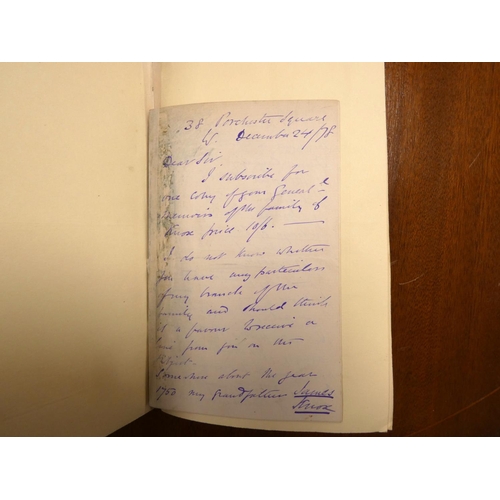 38 Porchester Square
W. December 24/78
Dear Sir,
I subscribe for
one copy of your Geneal l
Memoirs of the family of
Knox price 10/6. —
I do not know whether
you have any particulars
of my branch of the
family and should think
it a favour to receive a
line from you on the
subject.
Somewhere about the year
1750 my Grandfather James
Knox